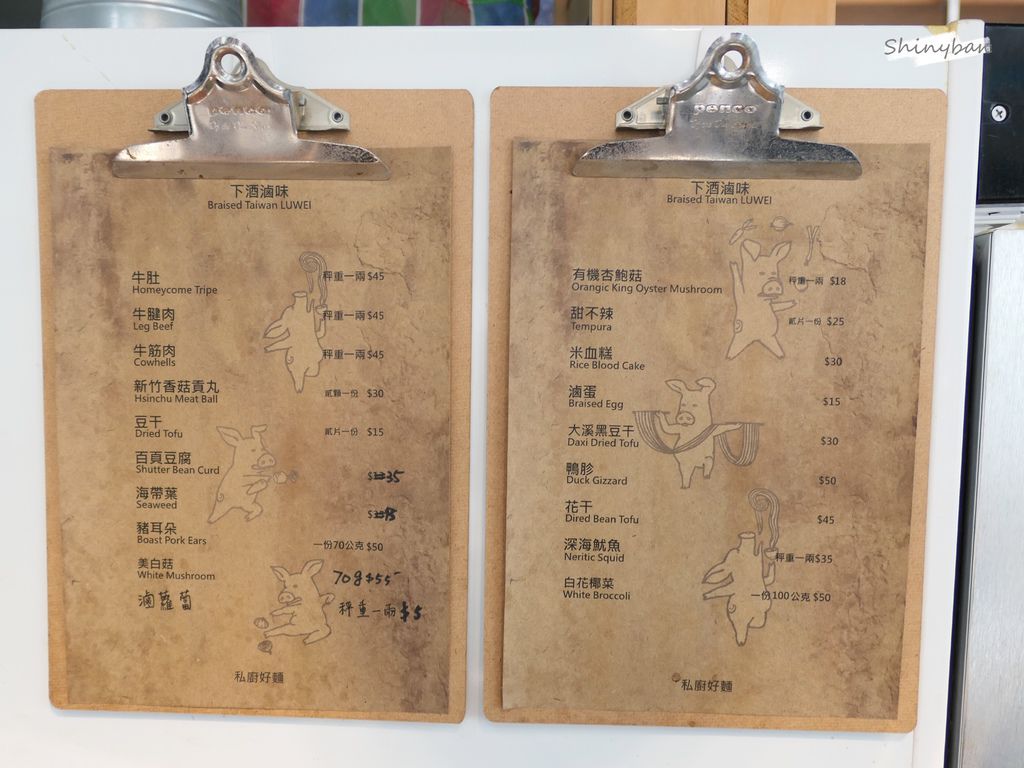 Shinyban
penco
下酒滷味
Braised Taiwan LUWEI
牛肚 秤重一兩 $45
Homeycome Tripe
牛腱肉 秤重一兩 $45
Leg Beef
牛筋肉 秤重一兩 $45
Cowhells
新竹香菇貢丸 貳顆一份 $30
Hsinchu Meat Ball
豆干 貳片一份 $15
Dried Tofu
百頁豆腐
Shutter Bean Curd $35
海帶葉
Seaweed $
豬耳朵
Boast Pork Ears 一份70公克 $50
美白菇
White Mushroom 70g $55
滷蘿蔔 秤重一兩 $5
私廚好麵
penco
下酒滷味
Braised Taiwan LUWEI
有機杏鮑菇 秤重一兩 $18
Orangic King Oyster Mushroom
甜不辣 貳片一份 $25
Tempura
米血糕 $30
Rice Blood Cake
滷蛋 $15
Braised Egg
大溪黑豆干 $30
Daxi Dried Tofu
鴨胗 $50
Duck Gizzard
花干 $45
Dired Bean Tofu
深海魷魚 秤重一兩 $35
Neritic Squid
白花椰菜 一份100公克 $50
White Broccoli
私廚好麵